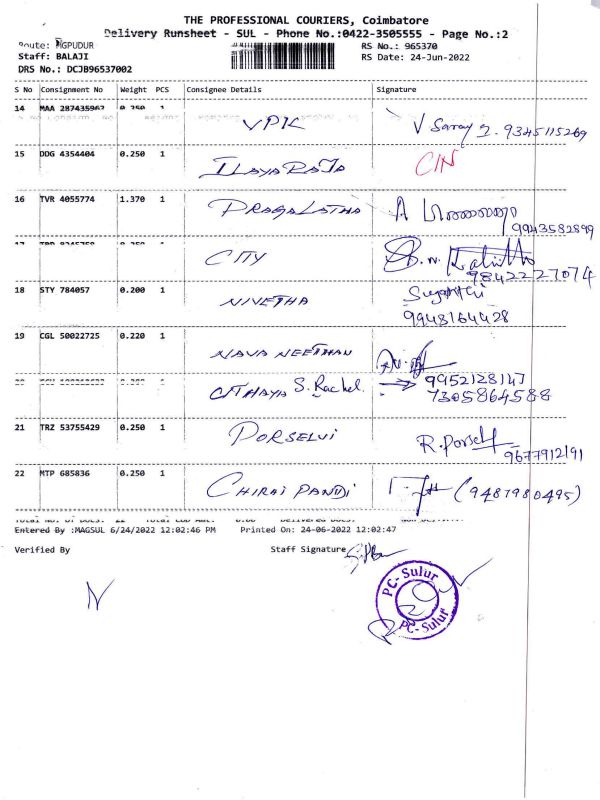 THE PROFESSIONAL COURIERS, Coimbatore
Delivery Runsheet - SUL - Phone No.:0422-3505555 - Page No.:2
Route: NGPUDUR
RS No.: 965370
Staff: BALAJI
RS Date: 24-Jun-2022
DRS No.: DCJB96537002
S No Consignment No Weight PCS Consignee Details Signature
14 MAA 287435962 0.250 1 VPK V Saray 9345115269
15 DDG 4354404 0.250 1 ILAYARAJA CIN
16 TVR 4055774 1.370 1 PRAGALATHA A
9943582899
17 CITY
9842227074
18 STY 784057 0.200 1 NIVETHA Suganthi
9948164428
19 CGL 50022725 0.220 1 NAVANEETHAN
20 CITHAYA S. Rachel. 9952128147
7305864588
21 TRZ 53755429 0.250 1 PORSELVI R. Porselvi
9677912191
22 MTP 685836 0.250 1 CHIRAI PANDI (9487980495)
Total No. of Docs: 22 Total COD Amt: 0.00 Delivered Docs:
Entered By :MAGSUL 6/24/2022 12:02:46 PM Printed On: 24-06-2022 12:02:47
Verified By Staff Signature
PC- Sulur
PC- Sulur